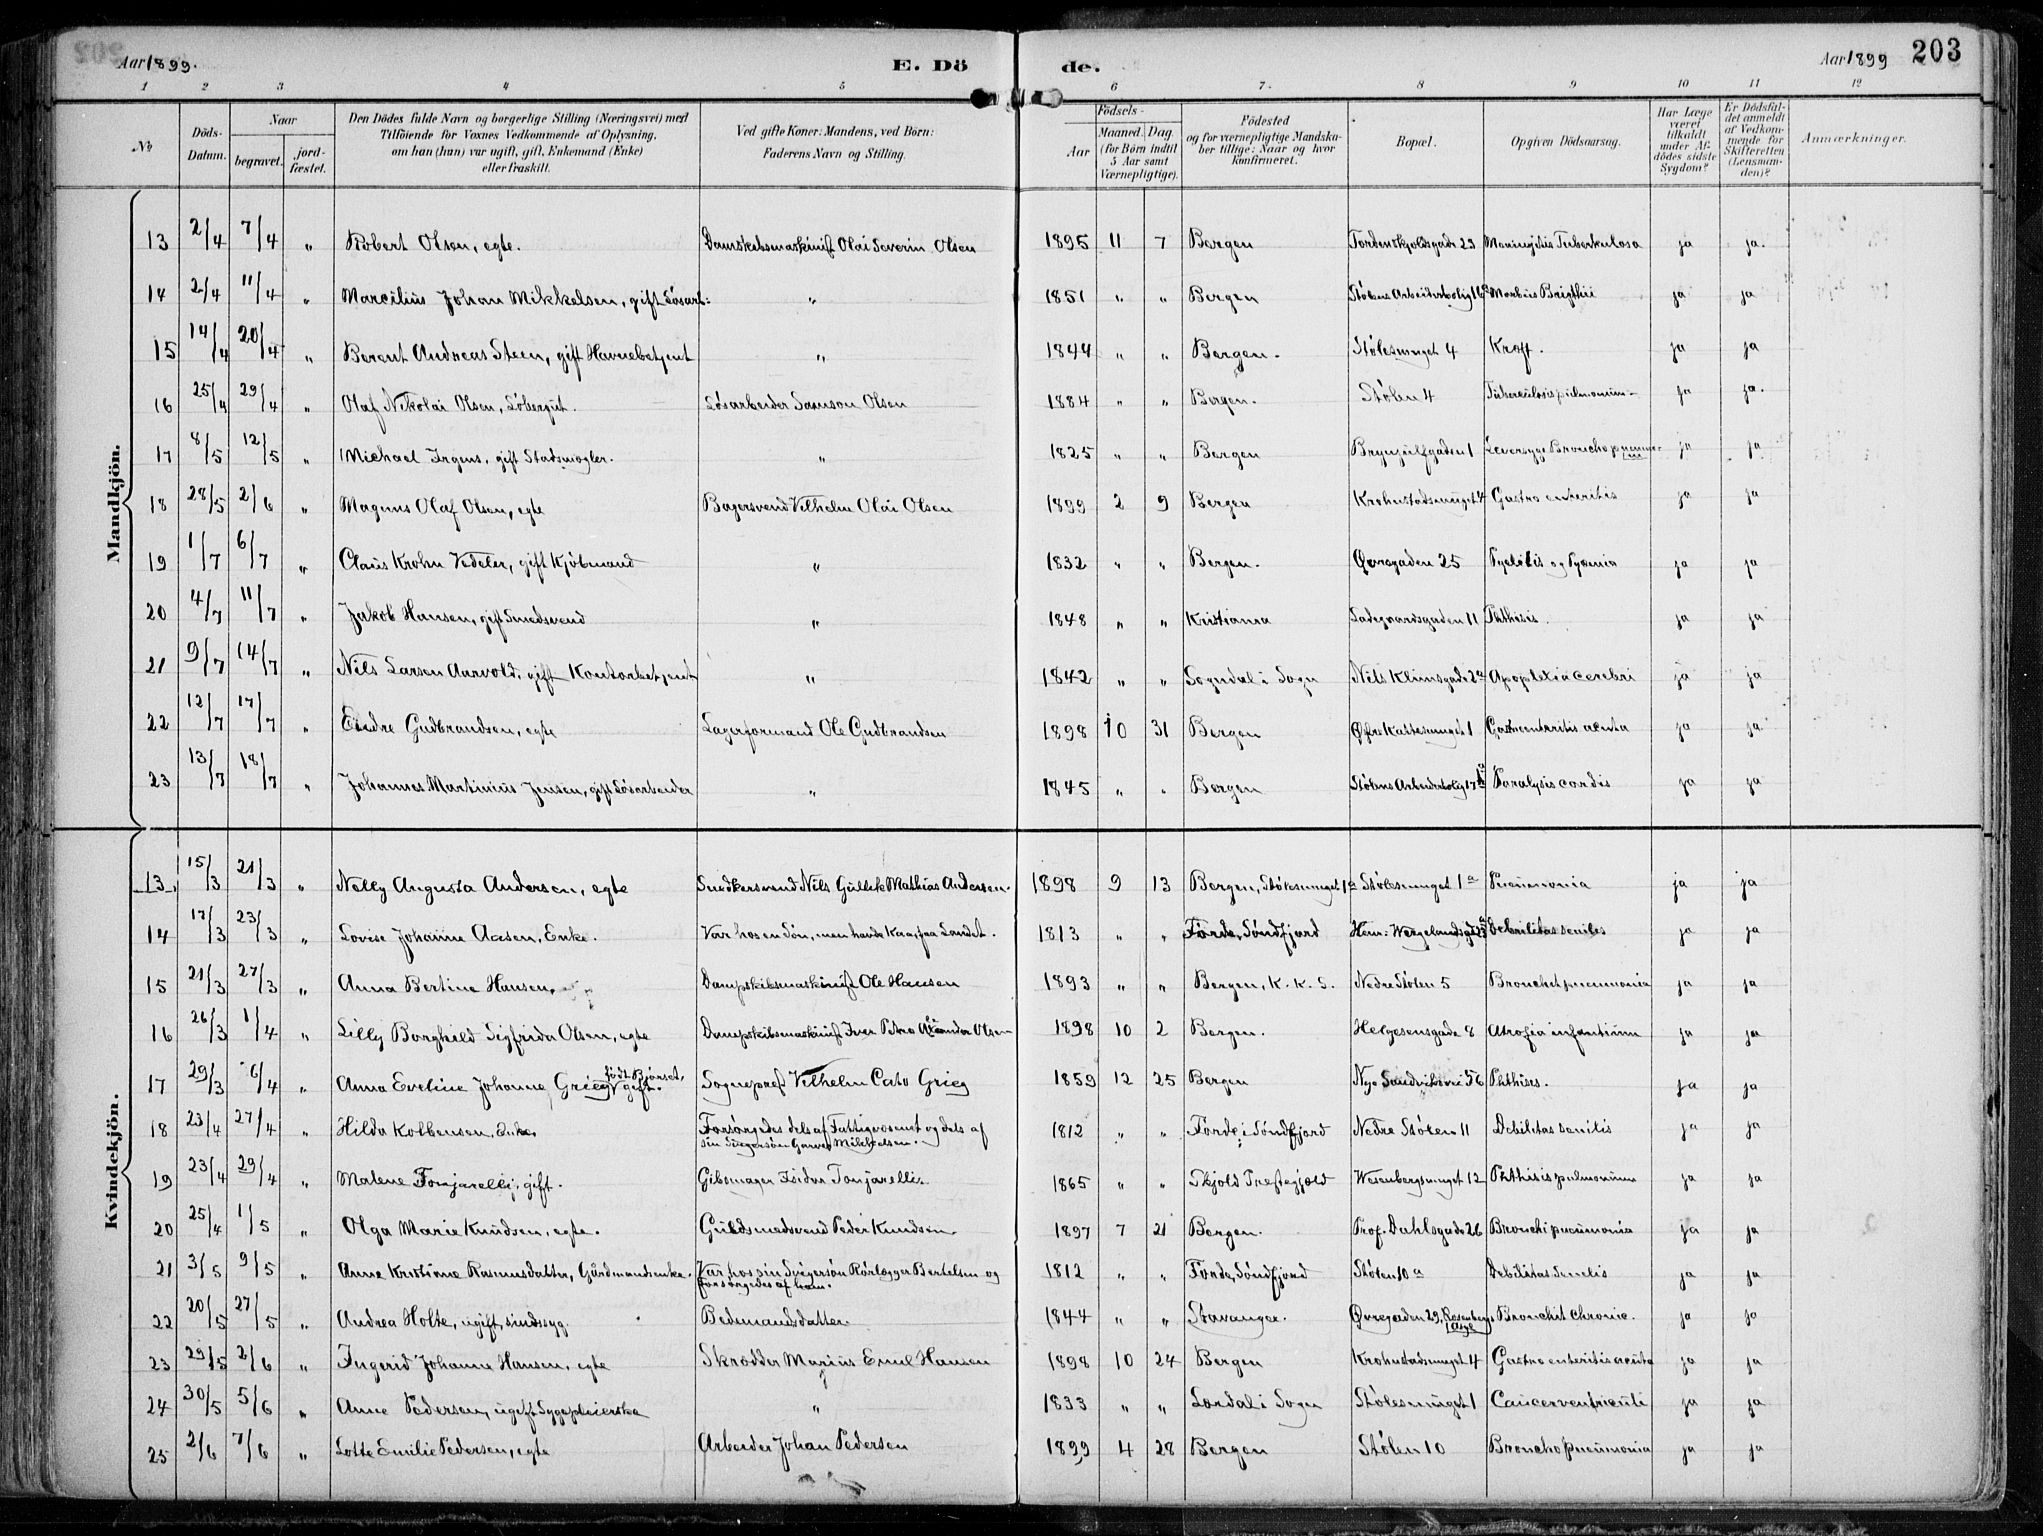 Aar 1899.
E. Dö
de.
Aar 1899
203
1 2 3 4 5 6 7. 8 9 10 11 12
No
Döds-Datum.
Naar
begravet.
jord-fæstet.
Den Dödes fulde Navn og borgerlige Stilling (Næringsvei) med
Tilföiende for Voxnes Vedkommende af Oplysning,
om han (hun) var ugift, gift, Enkemand (Enke)
eller fraskilt.
Ved gifte Koner: Mandens, ved Børn:
Faderens Navn og Stilling.
Födsels-
Aar
Maaned. Dag.
(for Börn indtil
5 Aar samt
Værnepligtige).
Födested
og for værnepligtige Mandska-
ber tillige: Naar og hvor
konfirmeret.
Bopæl.
Opgiven Dödsaarsag.
Har Læge
været
tilkaldt
under Af-
dödes sidste
Sygdom?
Er Dödsfal-
det anmeldt
af Vedkom-
mende for
Skifteretten
(Lensman-
den)?
Anmærkninger.
Mandkjön.
13 2/4 7/4 " Robert Olsen, egte. Damskibsmaskinist Olai Severin Olsen 1895 11 7 Bergen Tordenskjoldsgade 23 Meningitis Tuberkulosa ja ja.
14 2/4 11/4 " Marcilius Johan Mikkelsen, gift Løsarb: " 1851 " " Bergen Stølens Arbeiderbolig 16 Morbus Brigthii ja ja
15 14/4 20/4 " Berent Andreas Steen, gift Havnebetjent " 1844 " " Bergen. Stølesmuget 4 Kræft. ja ja
16 25/4 29/4 " Olaf Nikolai Olsen, Løbergut. Løsarbeider Samson Olsen 1884 " " Bergen. Stølen 4 Tuberculosis pulmonum ja ja.
17 8/5 12/5 " Michael Irgens, gift Stadsmægler. " 1825 " " Bergen Brynjulfgaden 1 Leversyge Bronchopneumonie ja ja
18 28/5 2/6 " Magnus Olaf Olsen, egte Bagersvend Vilhelm Olai Olsen 1899 2 9 Bergen Krohnstadsmuget 4 Gastro enteritis ja ja
19 1/7 6/7 " Claus Krohn Vedeler, gift Kjøbmand " 1832 " " Bergen. Øvregaden 25 Pyelitis og Pyæmia ja ja
20 4/7 11/7 " Jakob Hansen, gift Smedsvend " 1848 " " Kristiania Ladegaardsgaden 11 Phthisis. ja ja
21 9/7 14/7 " Nils Larsen Aarvold, gift Kontorbetjent " 1842 " " Sogndal i Sogn Nils Klimsgade 2a Apoplexia cerebri ja ja
22 12/7 17/7 " Endre Gudbrandsen, egte Lagerformand Ole Gudbrandsen 1898 10 31 Bergen Øvre Kattesmuget 1 Gastroenteritis acuta ja ja.
23 13/7 18/7 " Johannes Martinius Jensen, gift Løsarbeider " 1845 " " Bergen Stølens Arbeiderbolig 17 Paralysis cordis ja ja
Kvindekjön.
13. 15/3 21/3 " Nelly Augusta Andersen, egte Snedkersvend Nils Gullik Mathias Andersen. 1898 9 13 Bergen, Stølesmuget 1a Stølesmuget 1a Pneumonia ja ja
14 17/3 23/3 " Lovise Johanne Aasen, Enke. Var hos en Søn, men havde Kaar paa Landet. 1813 " " Førde, Søndfjord Henr: Wergelandsgd Debilitas seniles ja ja
15 21/3 27/3 " Anna Bertine Hansen, Dampskibsmaskinist Ole Hansen 1893 " " Bergen, K. K. S. Nedre Stølen 5 Bronchit pneumonia ja ja
16 26/3 1/4 " Lilly Borghild Sigfrida Olsen, egte Dampskibsmaskinist Iver Petro Alexander Olsen 1898 10 2 Bergen. Helgesensgade 8 Atrofia infantium ja ja
17 29/3 6/4 " Anna Eveline Johanne Grieg født Bjørset, gift. Sognepræst Vilhelm Cato Grieg 1859 12 25 Bergen Nye Sandviksvei 56 Phthises. ja ja
18 23/4 27/4 " Hilda Kolbensen, Enke. Forsørgedes dels af Fattigvæsenet og dels af
sin Svigersøn Garver Mikkelsen. 1812 " " Førde i Søndfjord Nedre Stølen 11 Debilitas senilis ja ja
19 23/4 29/4 " Malene Tonjarelli, gift. Gibsmager Isidor Tonjarelli. 1865 " " Skjold Præstegjæld Wesenbergsmuget 12 Phthisis pulmonum ja ja
20 25/4 1/5 " Olga Marie Knudsen, egte. Guldsmedsvend Peder Knudsen. 1897 7 21 Bergen. Prof. Dahlsgade 26 Bronchi pneumonia ja ja
21 3/5 9/5 " Anne Kristine Rasmusdatter, Gårdmandsenke. Var hos sin Svigersøn Rørlægger Bertelsen og
forsørgedes af ham. 1812 " " Førde, Søndfjord Stølen 10a Debilitas Senelis ja ja
22 20/5 27/5 " Andrea Holte, ugift, sindssyg. Bedemandsdatter. 1844 " " Stavanger. Øvregaden 29, Rosenbergs Asyl Bronchit chronic. ja ja
23 29/5 2/6 " Ingerid Johanne Hansen, egte Skrædder Marius Emil Hansen 1898 10 24 Bergen Krohnstadsmuget 4 Gastro enteritis acuta ja ja
24 30/5 5/6 " Anne Pedersen, ugift Sygepleierske " 1833 " " Lærdal i Sogn Stølesmuget 1 Cancer ventriculi ja ja
25 2/6 7/6 " Lotte Emilie Pedersen, egte Arbeider Johan Pedersen 1899 4 28 Bergen Stølen 10 Broncho pneumonia ja ja